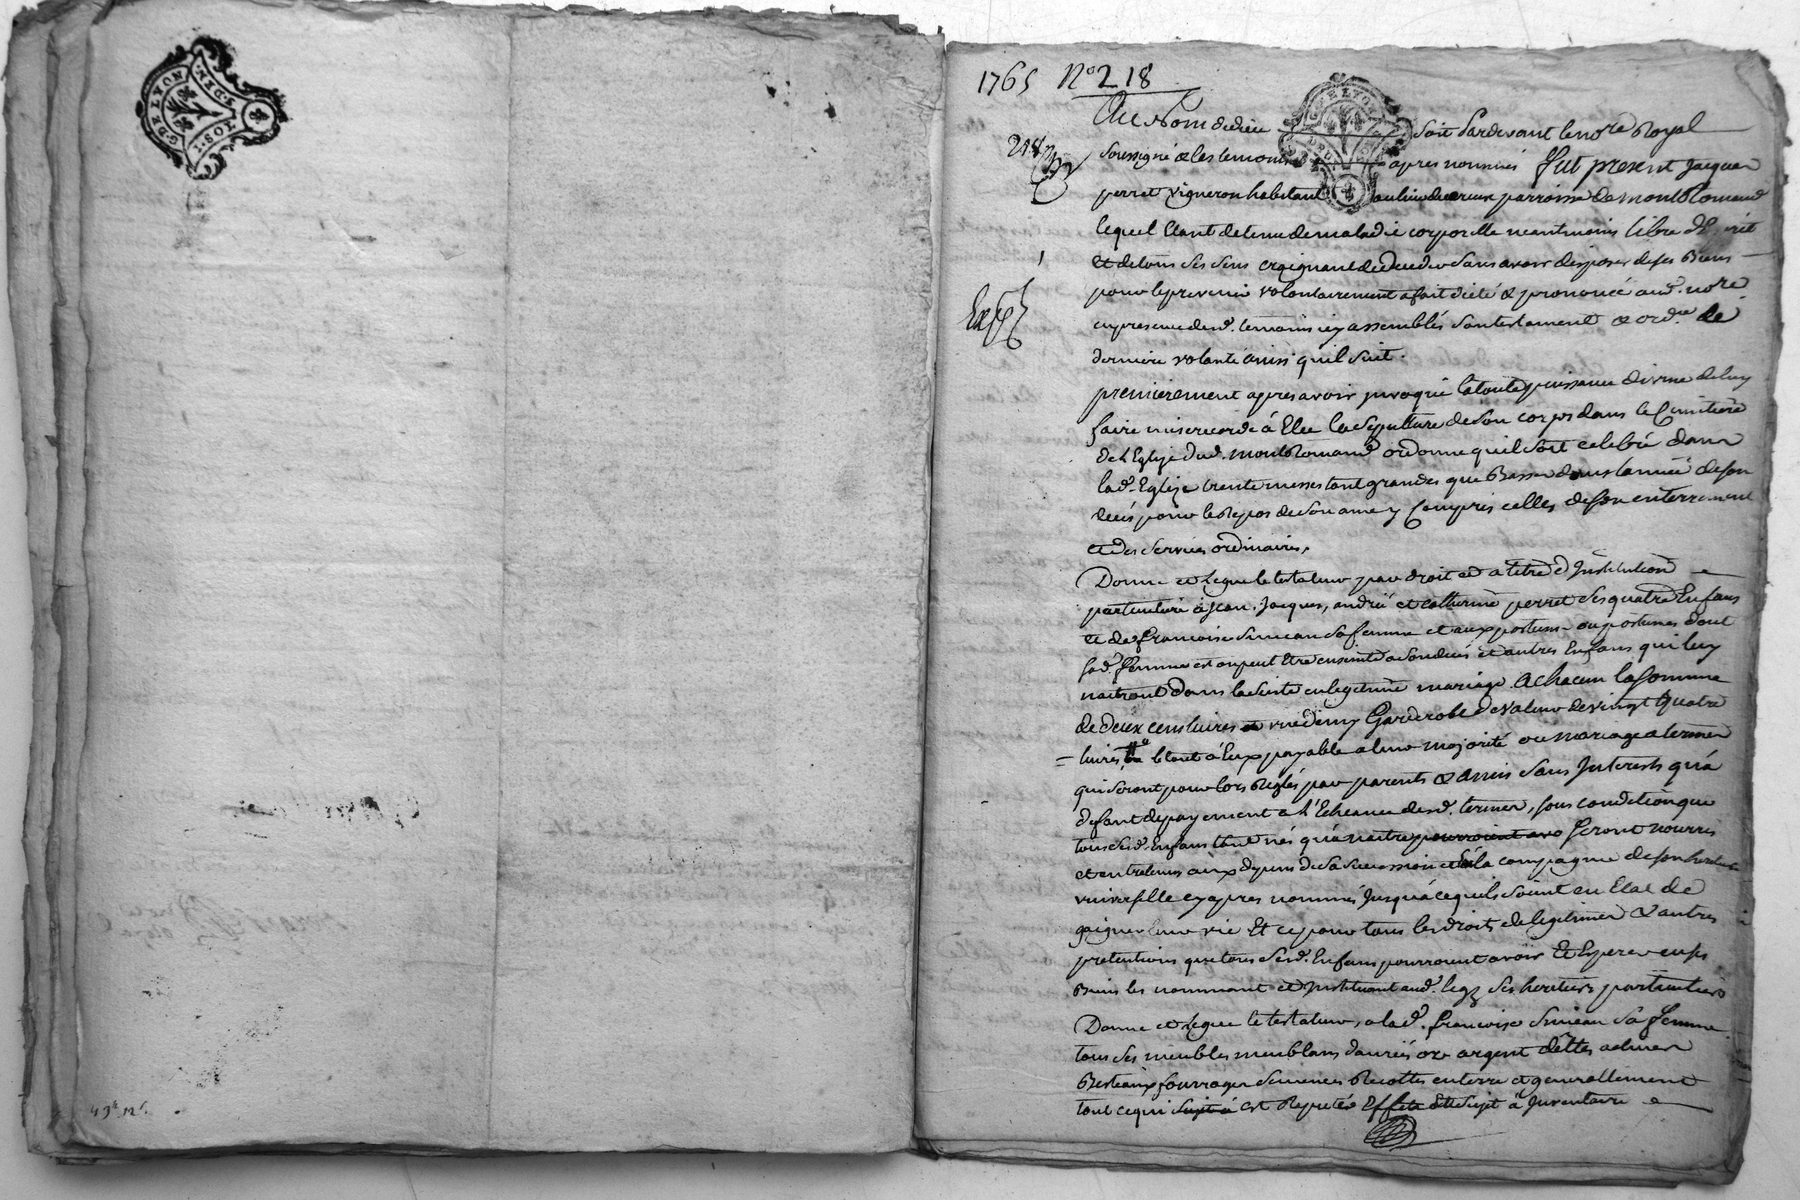 G. DE LYON
1. S. DEN.
1 SOL
43e. 12r.
1765 No 218
Au Nom de dieu soit Pardevant le no.re Royal
218
soussigné & les temoins apres nommés fut present Jacques
perret vigneron habitant au lieu de parroisse de montRomand
lequel Etant detenu de maladie corporelle neantmoins libre d'Esprit
et de tous ses sens craignant de deceder sans avoir disposer de ses Biens
pour le prevenir volontairement a fait dicté & prononcé aud. no.re
Exp.
en presence desd. temoins icy assemblés son testament & ord.re de
derniere volonté ainsi quil suit.
premierement apres avoir jnvoqué la toute puissance divine de luy
faire misericorde à Elu la sepulture de son corps dans le Cimitiere
de l'Eglise dud. montRomand ordonne quil soit celebré dans
lad. Eglise trente messes tant grandes que Basses dans l'année de son
decés pour le Repos de son ame y Compris celles de son enterrement
et des services ordinaires.
Donne et Legue le testateur par droit et a titre d'Jnstitution
particuliere à jean, Jacques, andré et catherine perret ses quatre Enfans
et de francoise simean sa femme et aux postume ou postumes dont
sad. femme est ou peut Etre enceinte a son decés et autres Enfans qui luy
naitront dans la suite en legitime mariage. A chacun la somme
de deux cens livres et une Garderobe de valeur de vingt quatre
livres le tout à Eux payable a leur majorité ou mariage a termes
qui seront pour lors Reglés par parents & amis sans Jnterests qu'a
defaut de payement a l'Echeance desd. termes, sous condition que
tous sesd. Enfans tant nés qu'a naitre pourroient avo seront nourris
et entretenus aux depens de sa succession et a la compagnie de son heritiere
universelle cy apres nommée Jusqua ce quils soient en Etat de
gaigner leur vie Et ce pour tous les droits de legitimes & autres
pretentions que tous sesd. Enfans pourroient avoir Et Esperer en ses
Biens les nommant et Jnstituant aud. legs ses heritiers particuliers
Donne et Legue le testateur, a lad. francoise simean sa femme
tous ses meubles meublans danrées or argent dettes actives
Besteaux fourrages semences Recoltes en terre et generallement
tout ce qui sujet à est Reputés Effets Et Sujet a Jnventaire